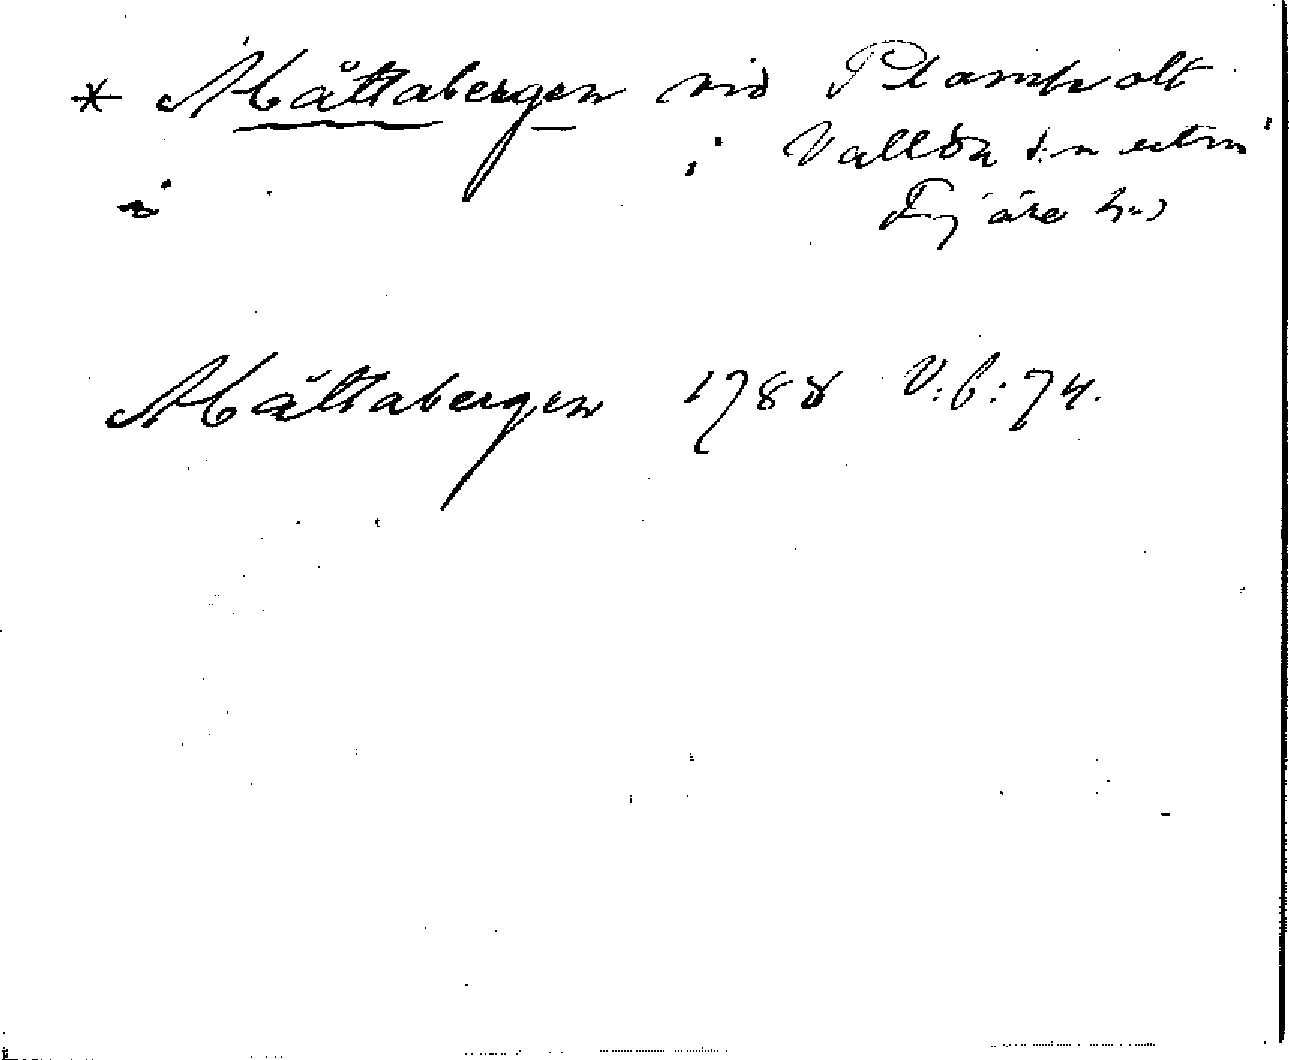 * Måttabergen vid Plamholt
i Vallda s:n utm
i Fjäre hd
Måttabergen 1788 V:b:74.